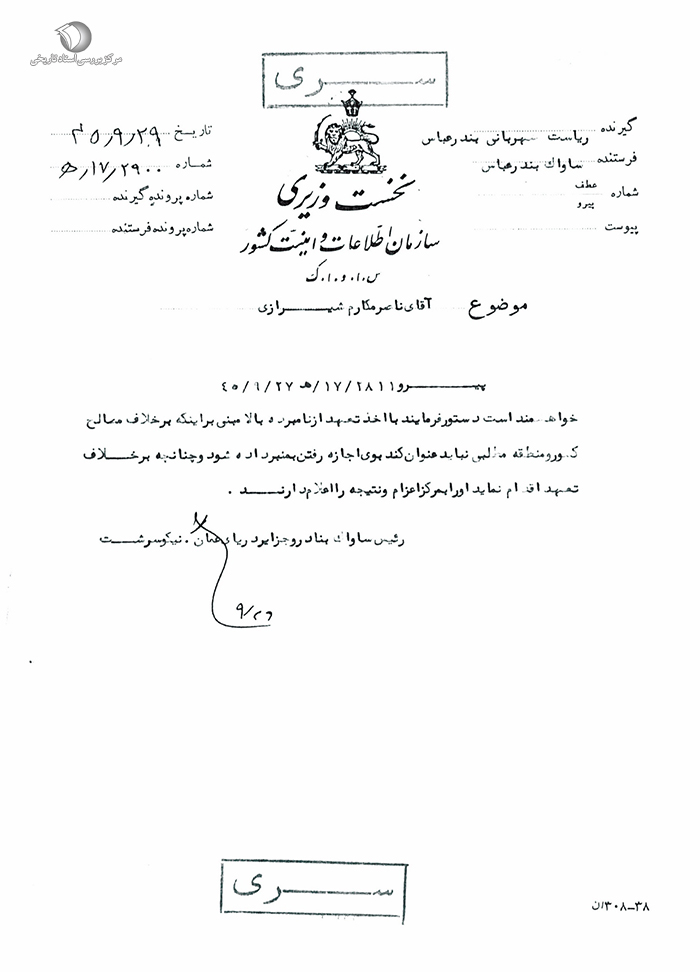 مرکز بررسی اسناد تاریخی
ســـری
گیرنده ریاست شهربانی بندرعباس
فرستنده ساواك بندرعباس
شماره عطف
پیرو
پیوست
تاریخ ۴۵/۹/۲۹
شماره ۱۷/۲۹۰۰/ه
شماره پرونده گیرنده
شماره پرونده فرستنده
نخست وزیری
سازمان اطلاعات و امنیت کشور
س.ا.و.ا.ک
موضوع آقای ناصر مکارم شیـــرازی
پیـــرو ۱۷/۲۸۱۱/ه‍ ۴۵/۹/۲۷
خواهشمند است دستور فرمایند با اخذ تعهد از نامبرده بالا مبنی بر اینکه برخلاف مصالح
کشور و منطقه مطلبی نباید عنوان کند بوی اجازه رفتن بمنبر داده شود و چنانچه برخـــلاف
تعهد اقدام نماید او را بمرکز اعزام ونتیجه را اعلام دارنـــد .
رئیس ساواك بنادر و جزایر دریای عمان . نیکوسرشـــت
۹/۲۶
ســـری
۳۸-۳۰۸ان